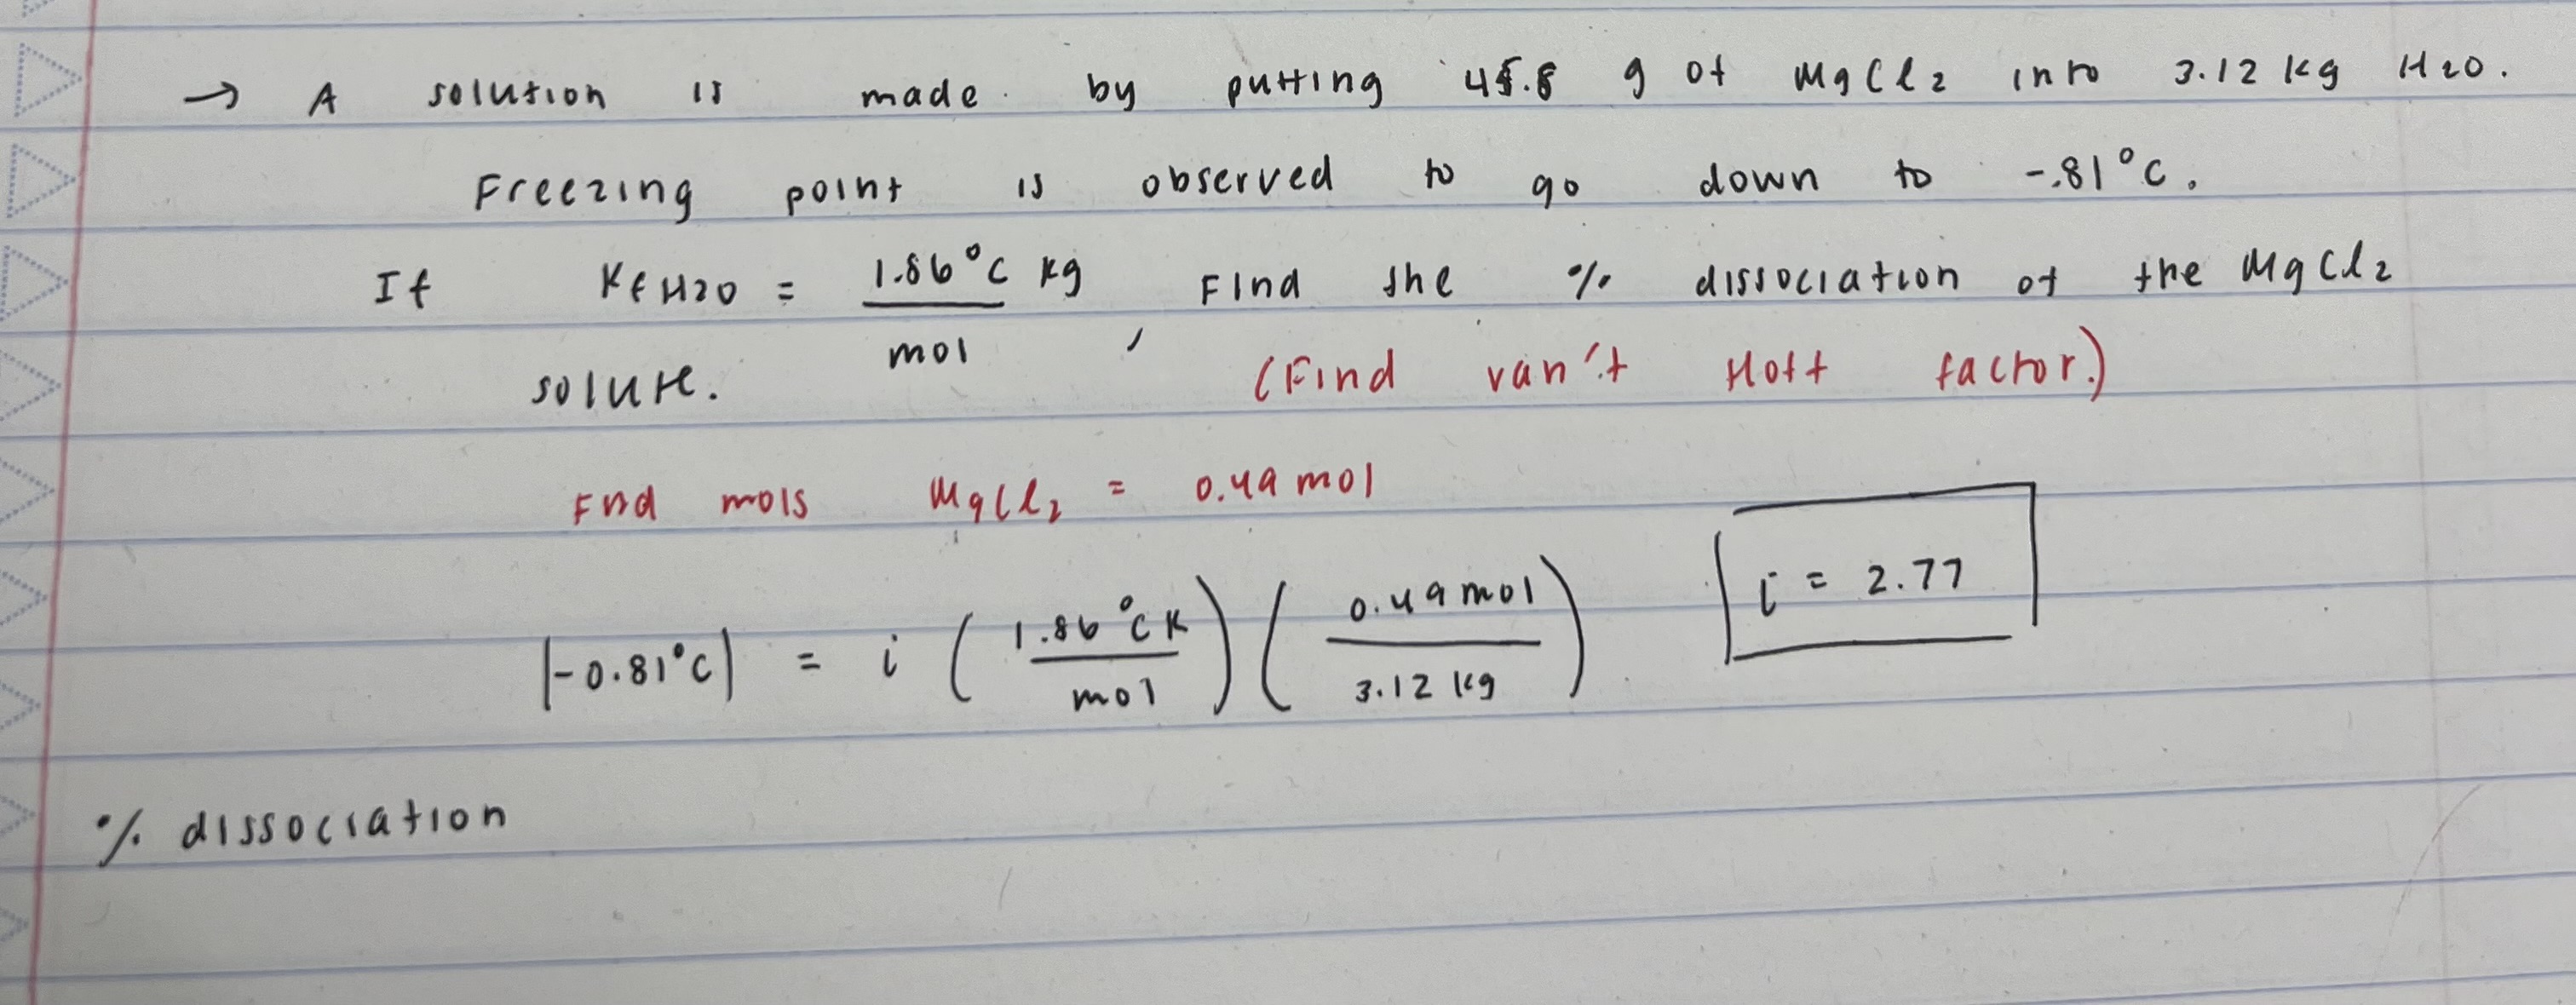 → A solution is made by putting 45.8 g of MgCl2 into 3.12 kg H2O.
Freezing point is observed to go down to -.81°C.
If Kf H2O = 1.86°C kg / mol , Find the % dissociation of the MgCl2
solute. (Find van't Hoff factor.)
Find mols MgCl2 = 0.49 mol
|-0.81°C| = i (1.86°C K / mol) (0.49 mol / 3.12 kg) i = 2.77
% dissociation